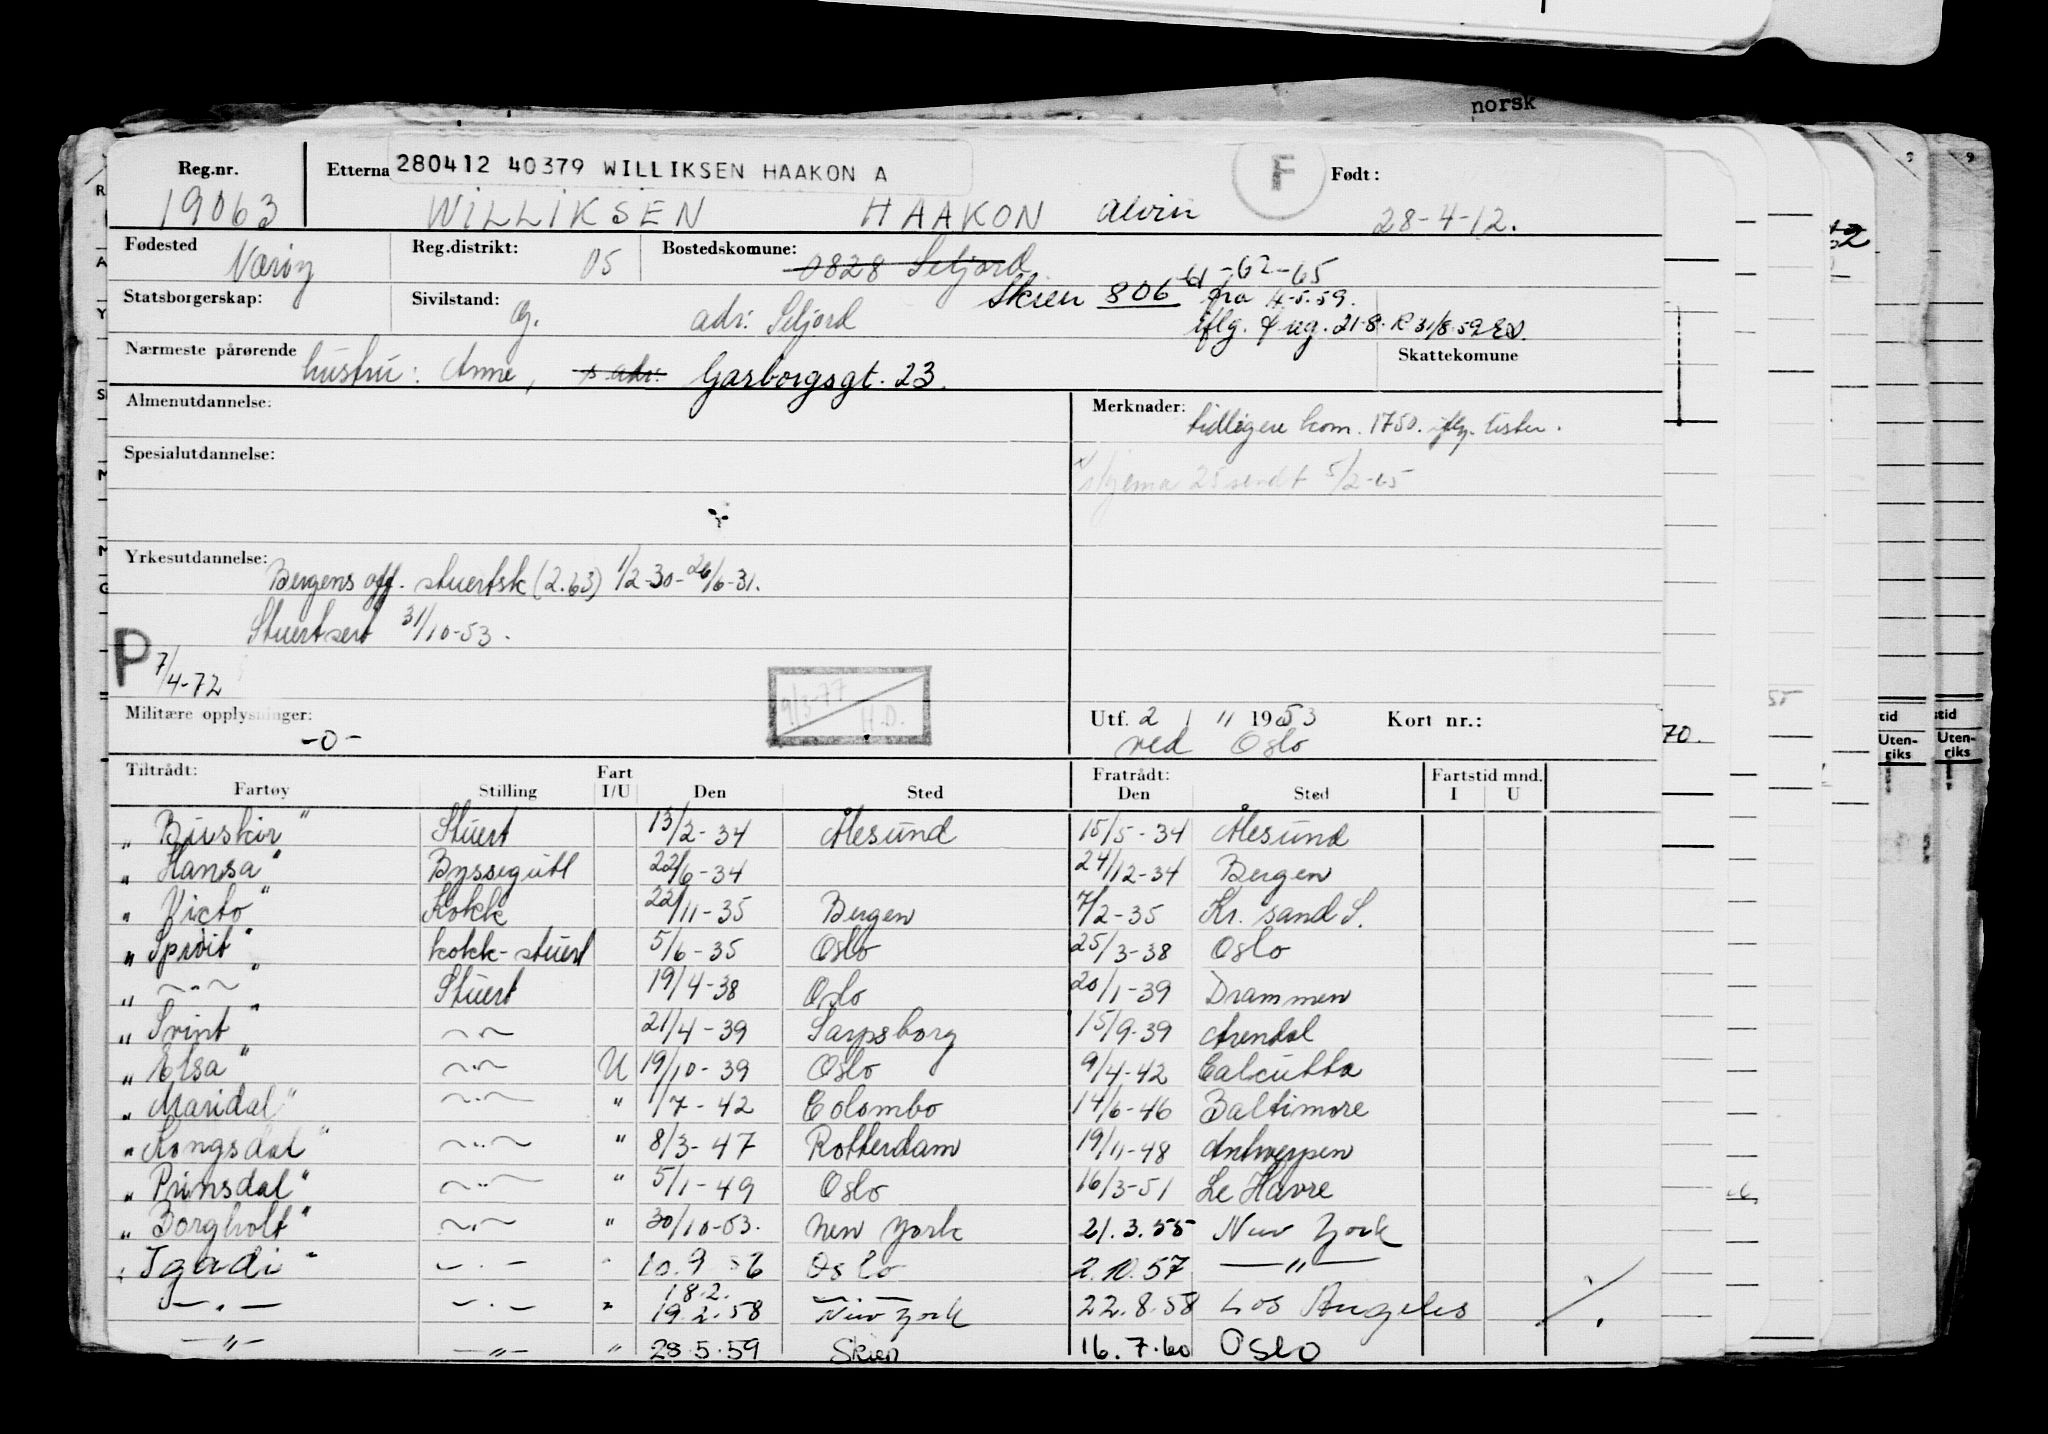 norsk
Reg.nr. Etterna 280412 40379 WILLIKSEN HAAKON A F Født:
19063 WILLIKSEN HAAKON Alvin 28-4-12.
Fødested Reg.distrikt: Bostedskomune:
Nærøy 05 0828 Seljord
61-62-65
Statsborgerskap: Sivilstand: Skien 806 fra 4-5.59.
g. adr. Seljord iflg. F reg. 21-8. R 31/8-59
Nærmeste pårørende Skattekomune
hustru: Anne, s. adr. Garborgsgt. 23.
Almenutdannelse: Merknader:
tidligere kom. 1750. iflg. lister.
Spesialutdannelse:
skjema 25 sendt 5/2-65
Yrkesutdannelse:
Bergens off. stuertsk (2.63) 1/2-30-26/6-31.
Stuertsert 31/10-53.
P 7/4-72
9/3-77 H.D.
Militære opplysninger: Utf. 2 / 11 1953 Kort nr.:
-0- ved Oslo
70.
Tiltrådt: Fart Fratrådt: Fartstid mnd.
Fartøy Stilling I/U Den Sted Den Sted I U
" Buskir " Stuert 13/2-34 Ålesund 15/5-34 Ålesund
" Hansa " Byssegutt 22/6-34 24/12-34 Bergen
" Victo " Kokk 22/11-35 Bergen 7/2-35 Kr. sand S.
" Sproit " kokk-stuert 5/6-35 Oslo 25/3-38 Oslo
" ~"~ " Stuert 19/4-38 Oslo 20/1-39 Drammen
" Srint " ~"~ 21/4-39 Sarpsborg 15/9-39 Arendal
" Elsa " ~"~ U 19/10-39 Oslo 9/4-42 Calcutta
" Maridal " ~"~ " 1/7-42 Colombo 14/6-46 Baltimore
" Kongsdal " ~"~ " 8/3-47 Rotterdam 19/11-48 Antwerpen
" Prinsdal " ~"~ " 5/1-49 Oslo 16/3-51 Le Havre
" Borgholt " ~"~ " 30/10-53. New York 21.3.55 New York
" Igadi " ~"~ " 10.9 56 Oslo 2.10.57 —"—
18.2. —"—
—"— —"— " 19.2.58 New York 22.8.58 Los Angeles
—"— —"— " 28.5.59 Skien 16.7.60 Oslo
tid
Uten-
riks
stid
Uten-
riks